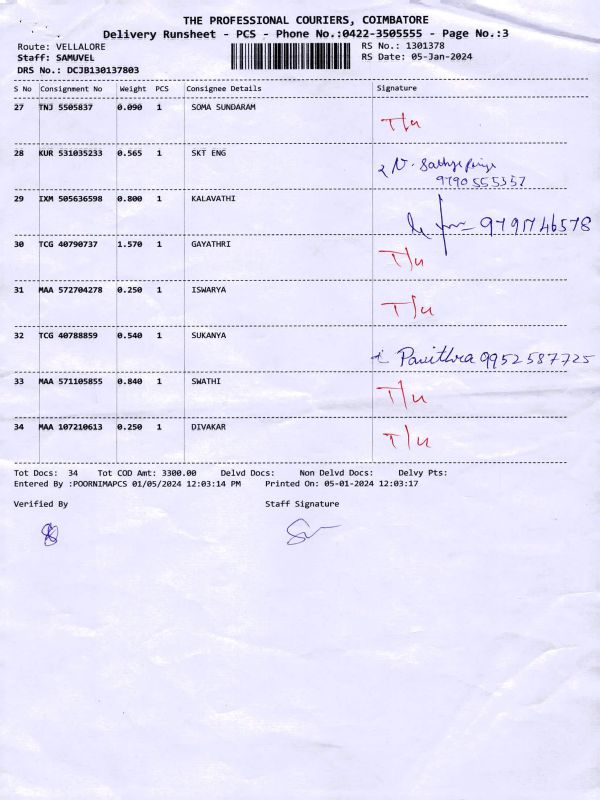 THE PROFESSIONAL COURIERS, COIMBATORE
Delivery Runsheet - PCS - Phone No.:0422-3505555 - Page No.:3
Route: VELLALORE RS No.: 1301378
Staff: SAMUVEL RS Date: 05-Jan-2024
DRS No.: DCJB130137803
S No Consignment No Weight PCS Consignee Details Signature
27 TNJ 5505837 0.090 1 SOMA SUNDARAM
T/u
28 KUR 531035233 0.565 1 SKT ENG
9790555357
29 IXM 505636598 0.800 1 KALAVATHI
9791746578
30 TCG 40790737 1.570 1 GAYATHRI
T/u
31 MAA 572704278 0.250 1 ISWARYA
T/u
32 TCG 40788859 0.540 1 SUKANYA
Pavithra 9952587725
33 MAA 571105855 0.840 1 SWATHI
T/u
34 MAA 107210613 0.250 1 DIVAKAR
T/u
Tot Docs: 34 Tot COD Amt: 3300.00 Delvd Docs: Non Delvd Docs: Delvy Pts:
Entered By :POORNIMAPCS 01/05/2024 12:03:14 PM Printed On: 05-01-2024 12:03:17
Verified By Staff Signature